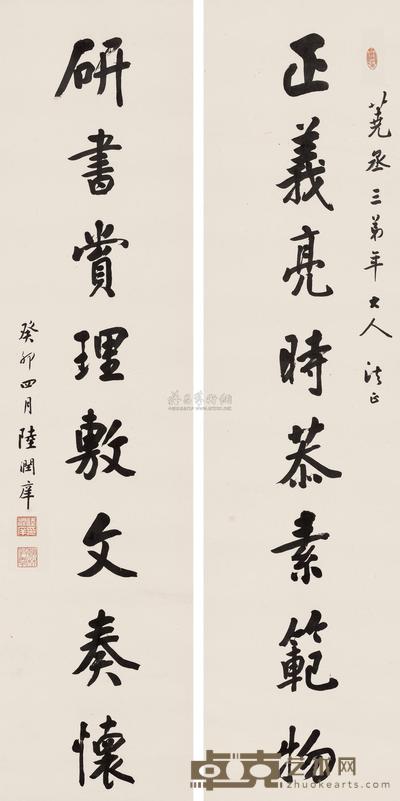 蕘丞三弟年大人法正
正義亮時恭素範物
研書賞理敷文奏懷
癸卯四月陸潤庠
卓克艺术网
www.zhuokearts.com